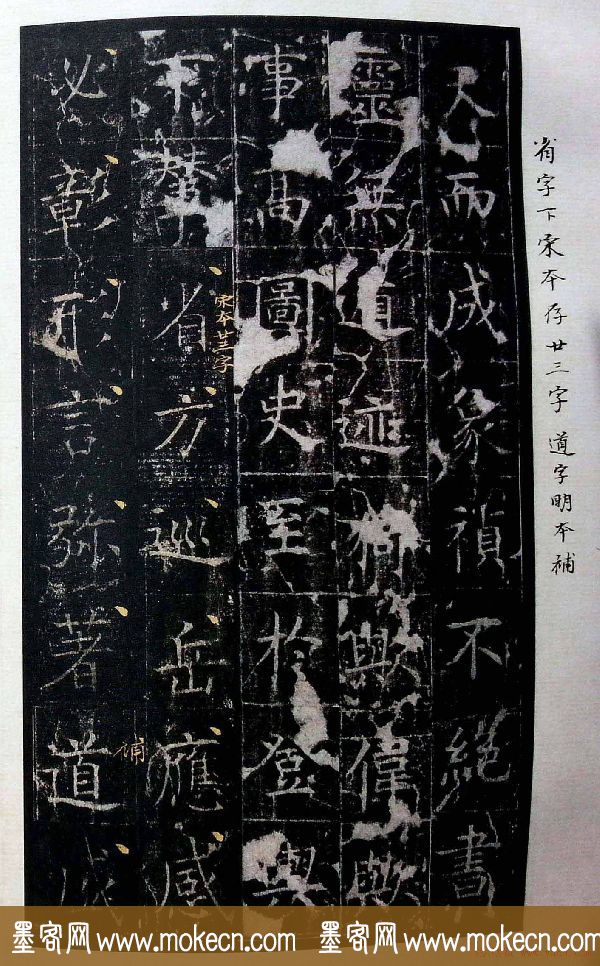 省字下宋本存廿三字 道字明本補
天而成象禎不絕書
靈無道迹猗歟偉歟
事高圖史至於登輿
下輦省方巡岳應感
宋本廿三字
必彰形言弥著道
補
墨客网 www.mokecn.com 墨客网 www.mokecn.com